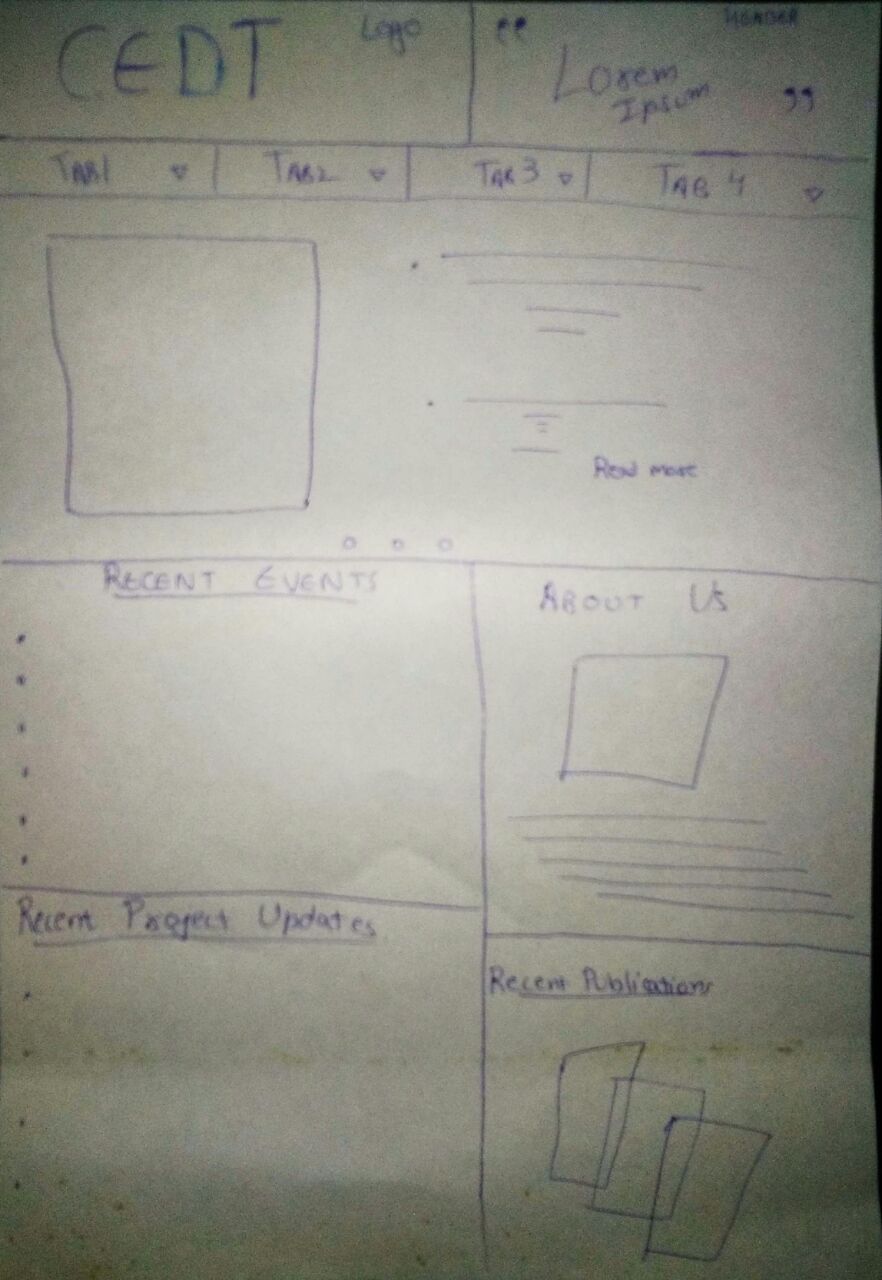 CEDT
Logo
HEADER
“
Lorem
Ipsum
”
TAB1 ▽
TAB2 ▽
TAB 3 ▽
TAB 4 ▽
Read more
RECENT EVENTS
ABOUT US
Recent Project Updates
Recent Publications